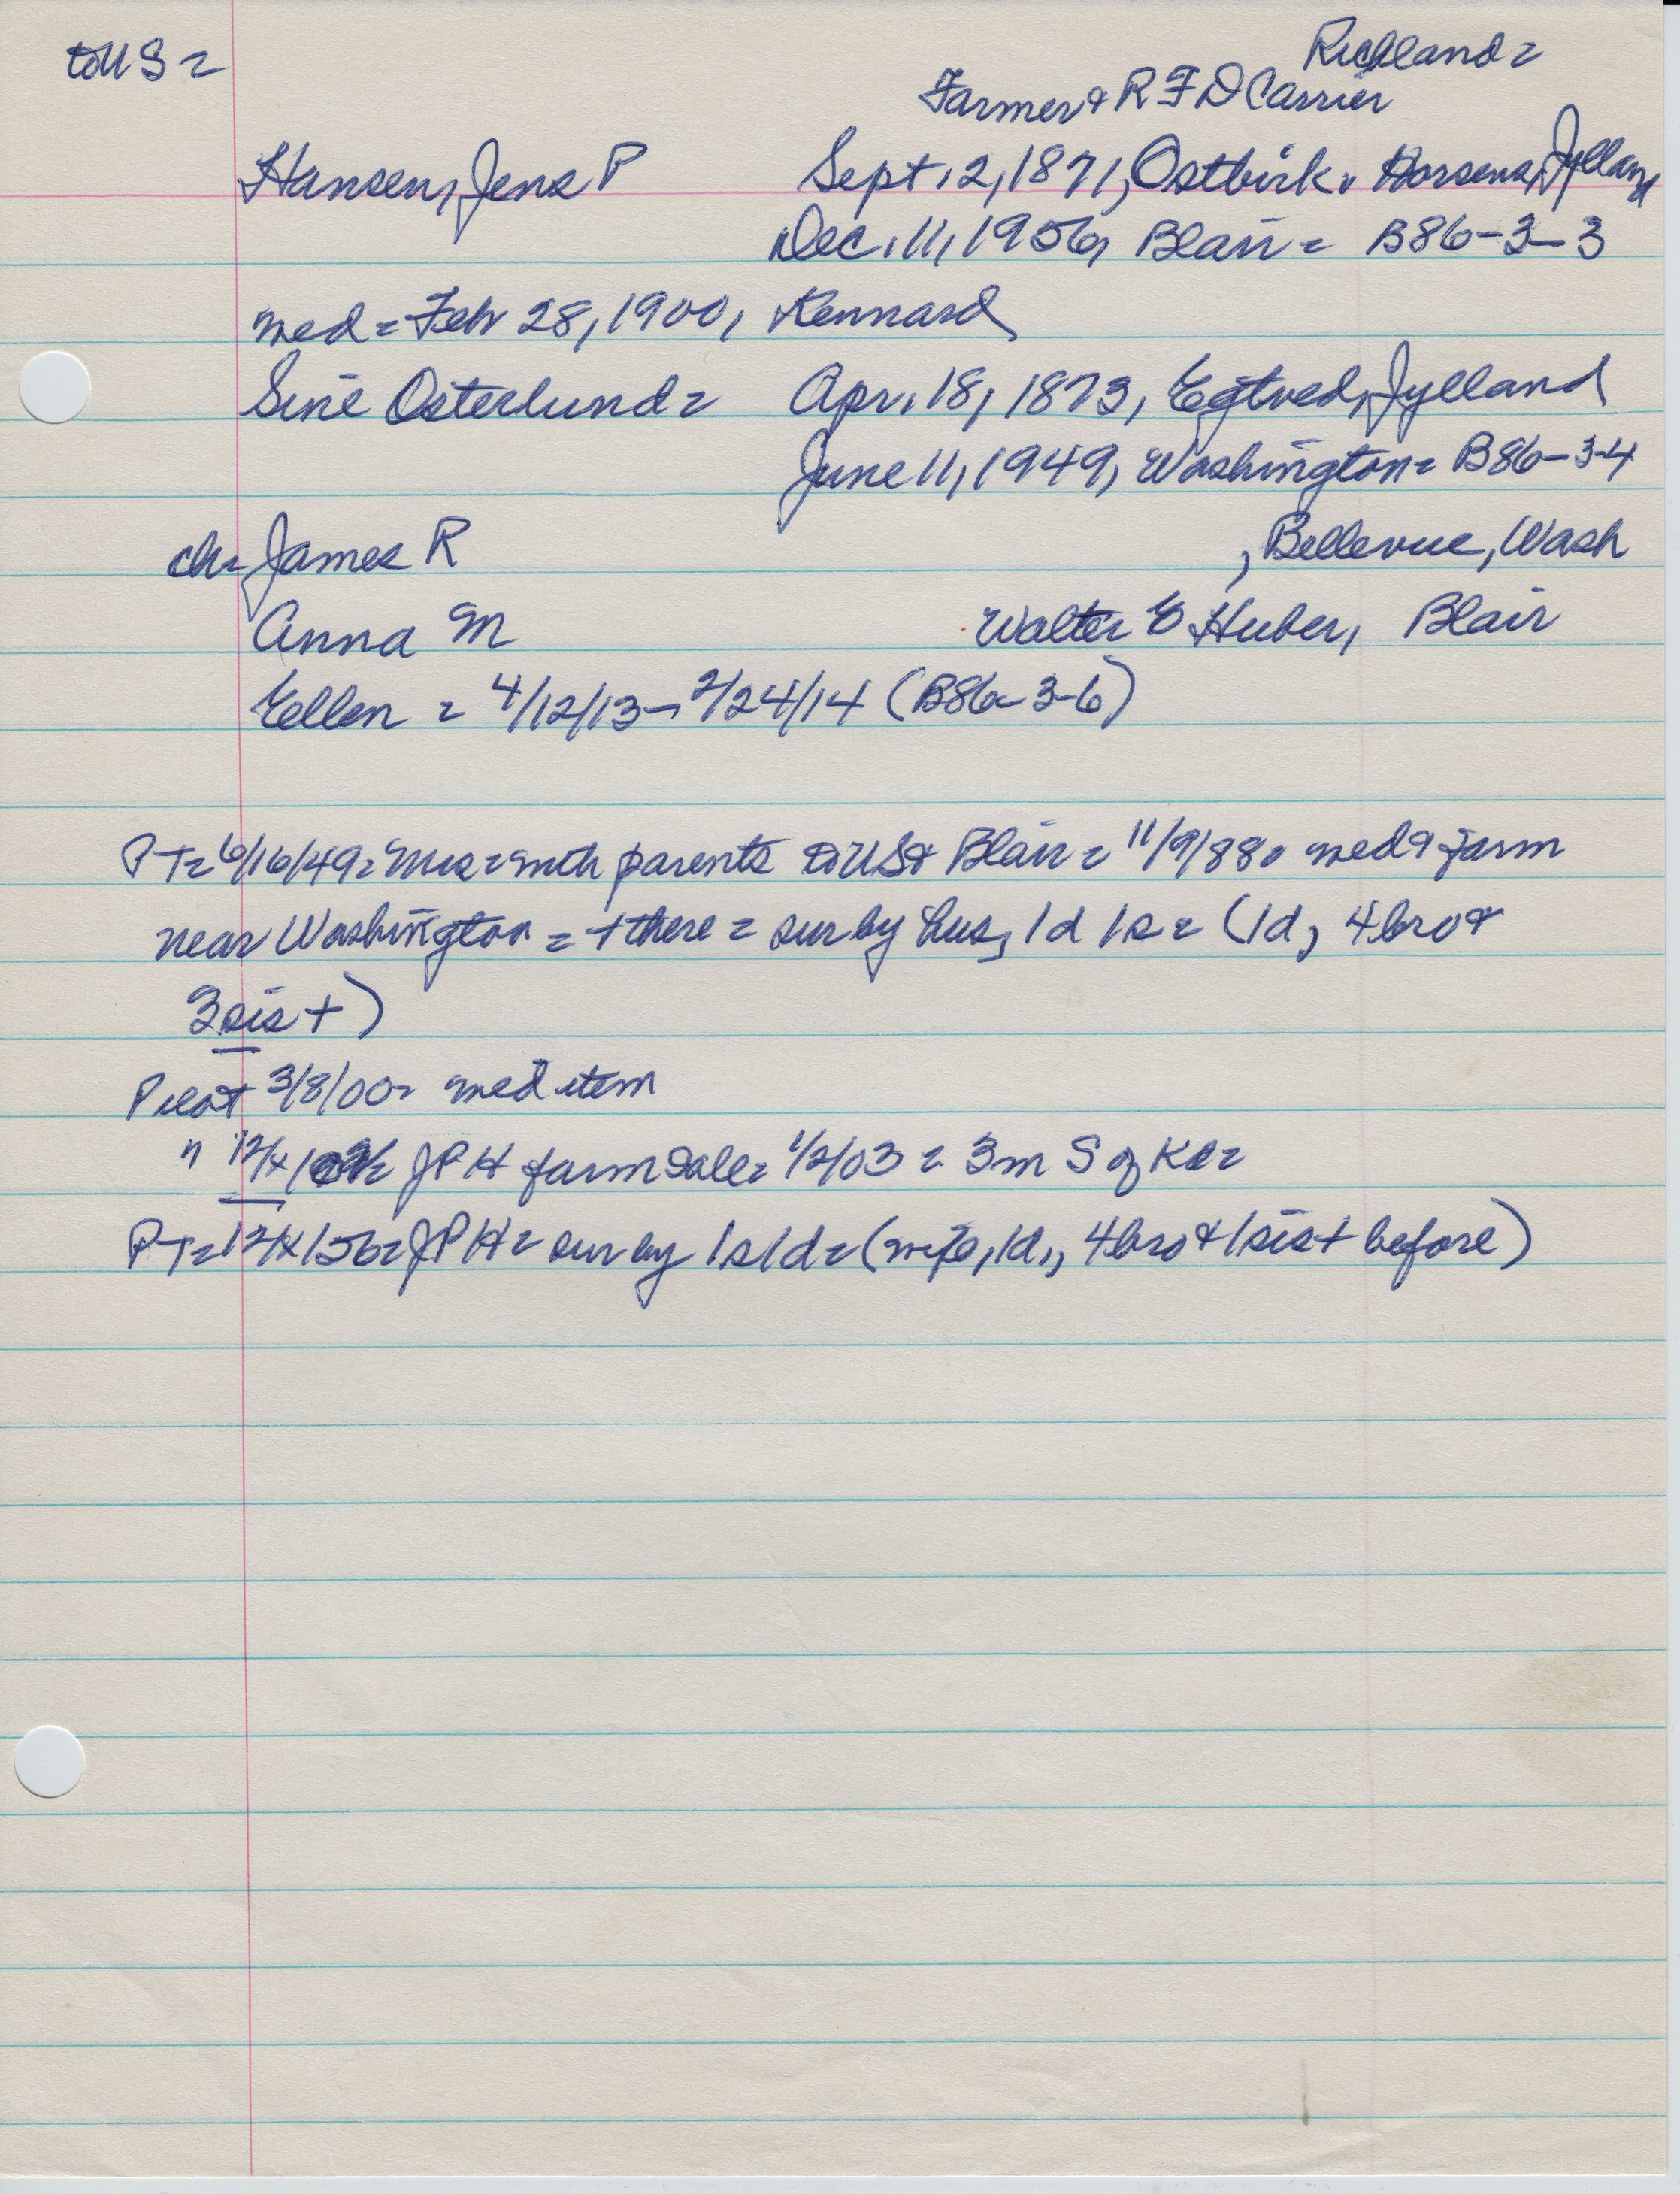 to U S =
Richland =
Farmer & R F D Carrier
Hansen, Jens P Sept. 2, 1871, Ostbirk. Horsens, Jylland
Dec. 11, 1956, Blair = B86-3-3
med = Feb 28, 1900, Kennard
Sine Osterlund = Apr. 18, 1873, Egtved, Jylland
June 11, 1949, Washington = B86-3-4
ch= James R , Bellevue, Wash
Anna M Walter E Huber, Blair
Ellen = 4/12/13-2/24/14 (B86-3-6)
PT= 6/16/49= Mrs = with parents to US & Blair = 11/9/88 med & farm
near Washington = + there = sur by hus, 1d 1s = (1d, 4 bro &
3 sis +)
Pilot 3/8/00= med item
" 12/x/02= JPH farm sale= 1/2/03 = 3m S of K =
PT= 12/x/56= JPH = sur by 1s 1d = (wife, 1d., 4 bro & 1 sis + before)